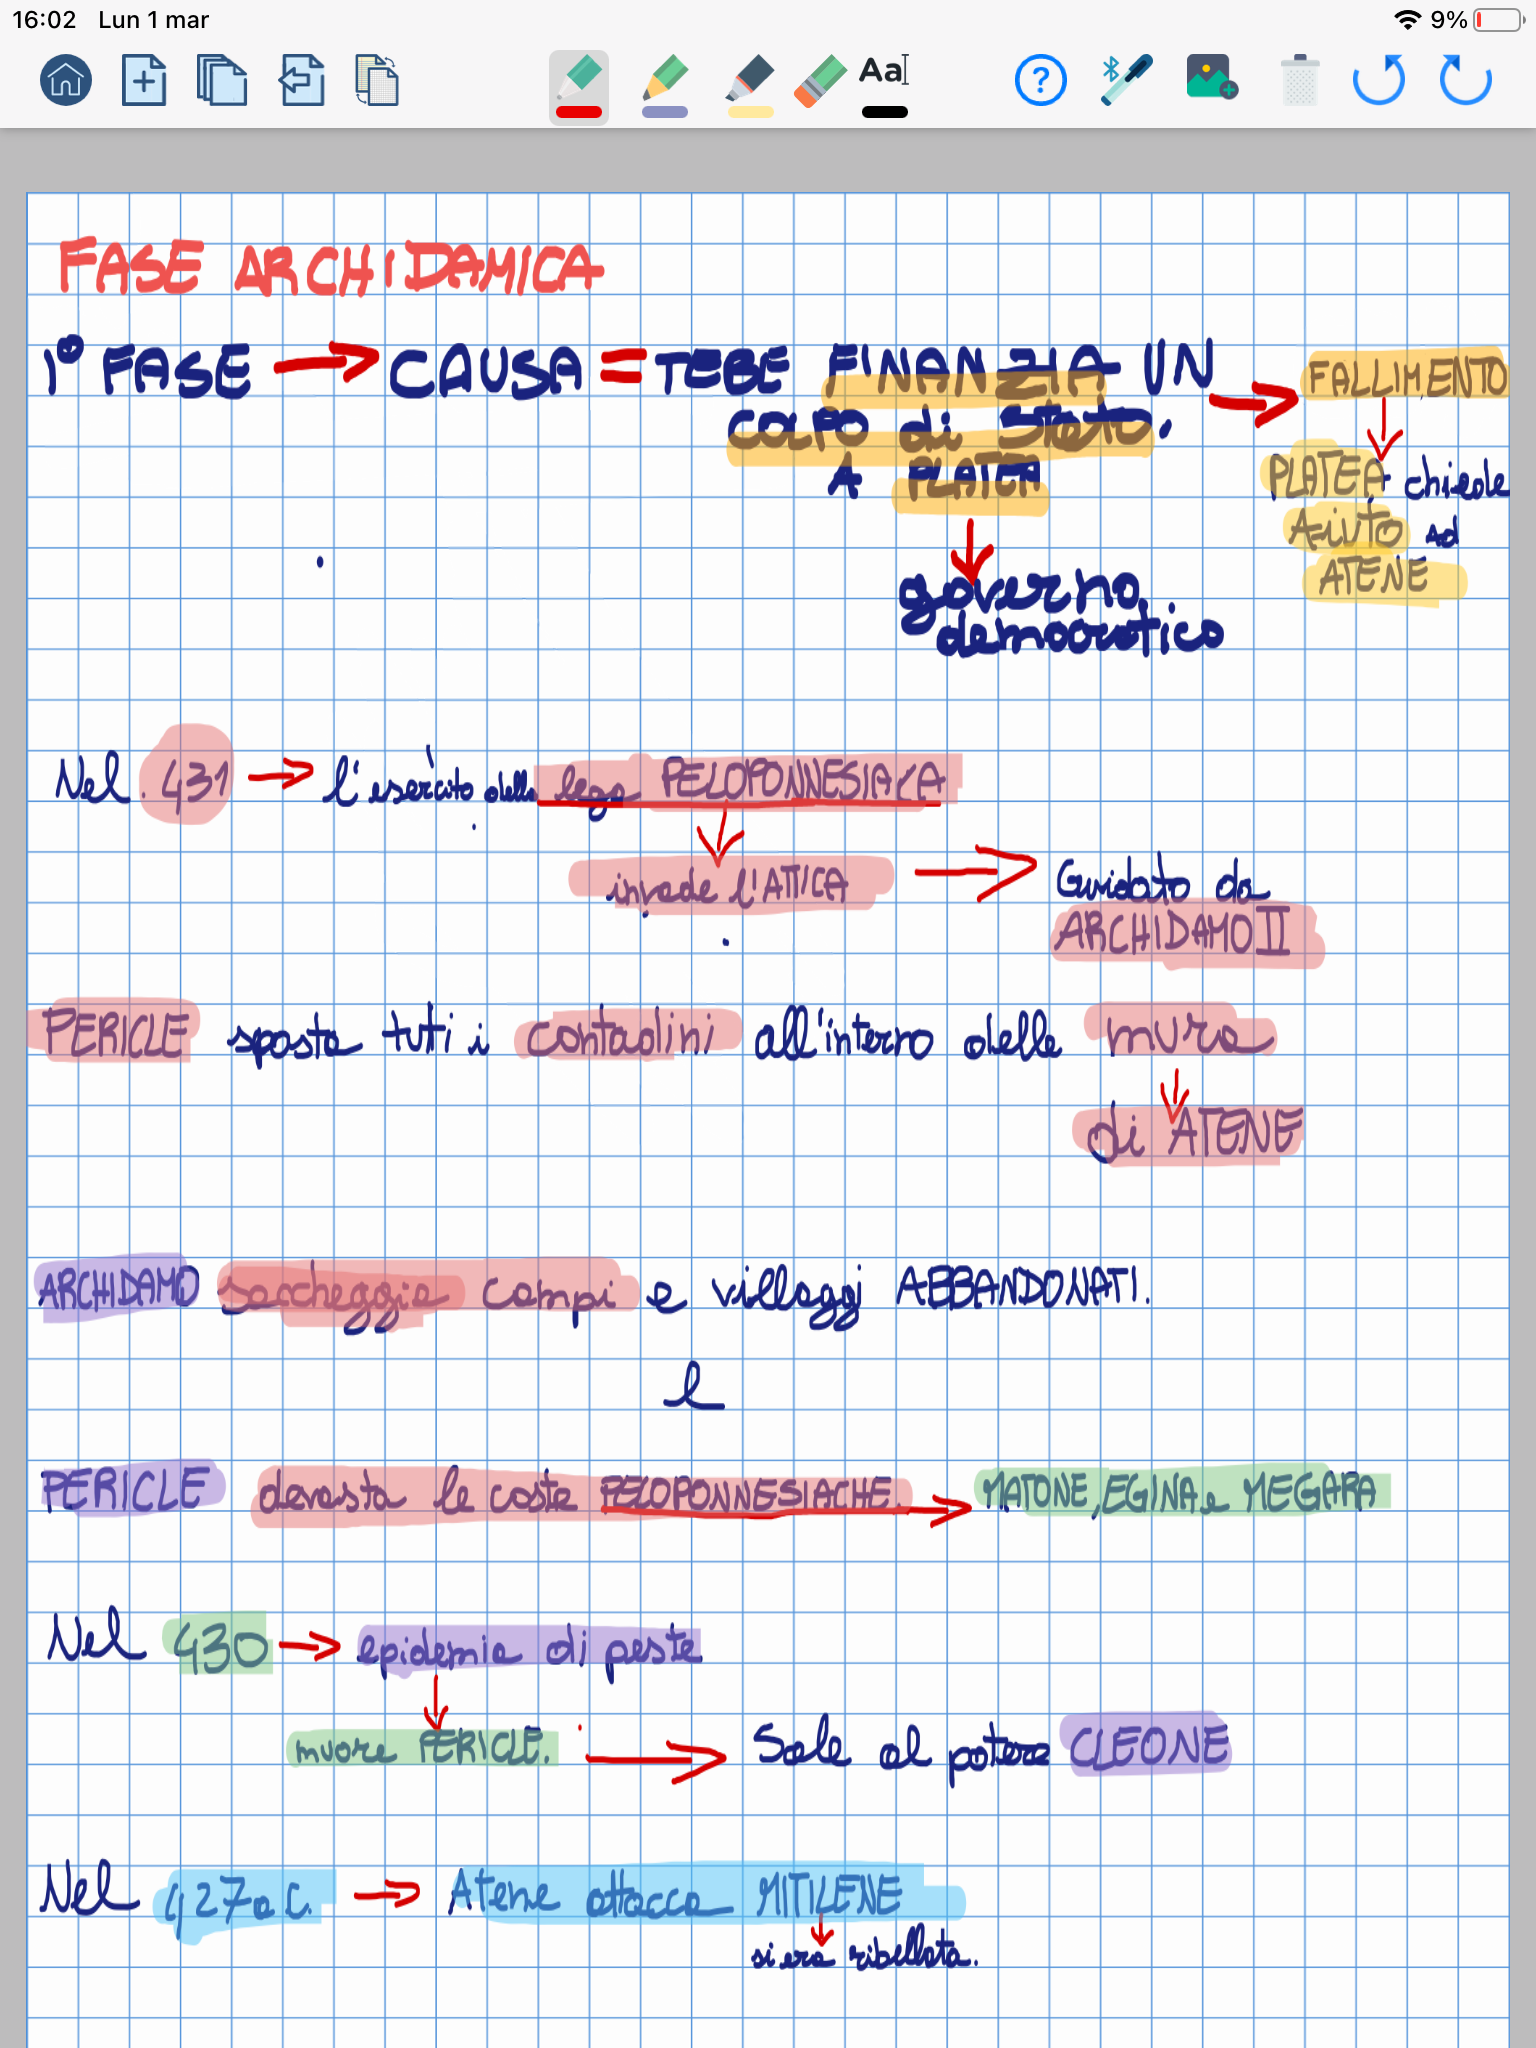 16:02 Lun 1 mar 9%
Aa
?
FASE ARCHIDAMICA
1° FASE → CAUSA = TEBE FINANZIA UN → FALLIMENTO
COLPO di Stato.
A PLATEA
PLATEA chiede
Aiuto ad
ATENE
governo
democratico
Nel 431 → l'esercito della lega PELOPONNESIACA
invade l'ATTICA → Guidato da
ARCHIDAMO II
PERICLE sposta tuti i contadini all'interno delle mura
di ATENE
ARCHIDAMO saccheggia campi e villaggi ABBANDONATI.
l
PERICLE devasta le coste PELOPONNESIACHE. → MATONE, EGINA e MEGARA
Nel 430 → epidemia di peste
muore PERICLE. → Sale al potere CLEONE
Nel 427 a C. → Atene attacca MITILENE
si era ribellata.